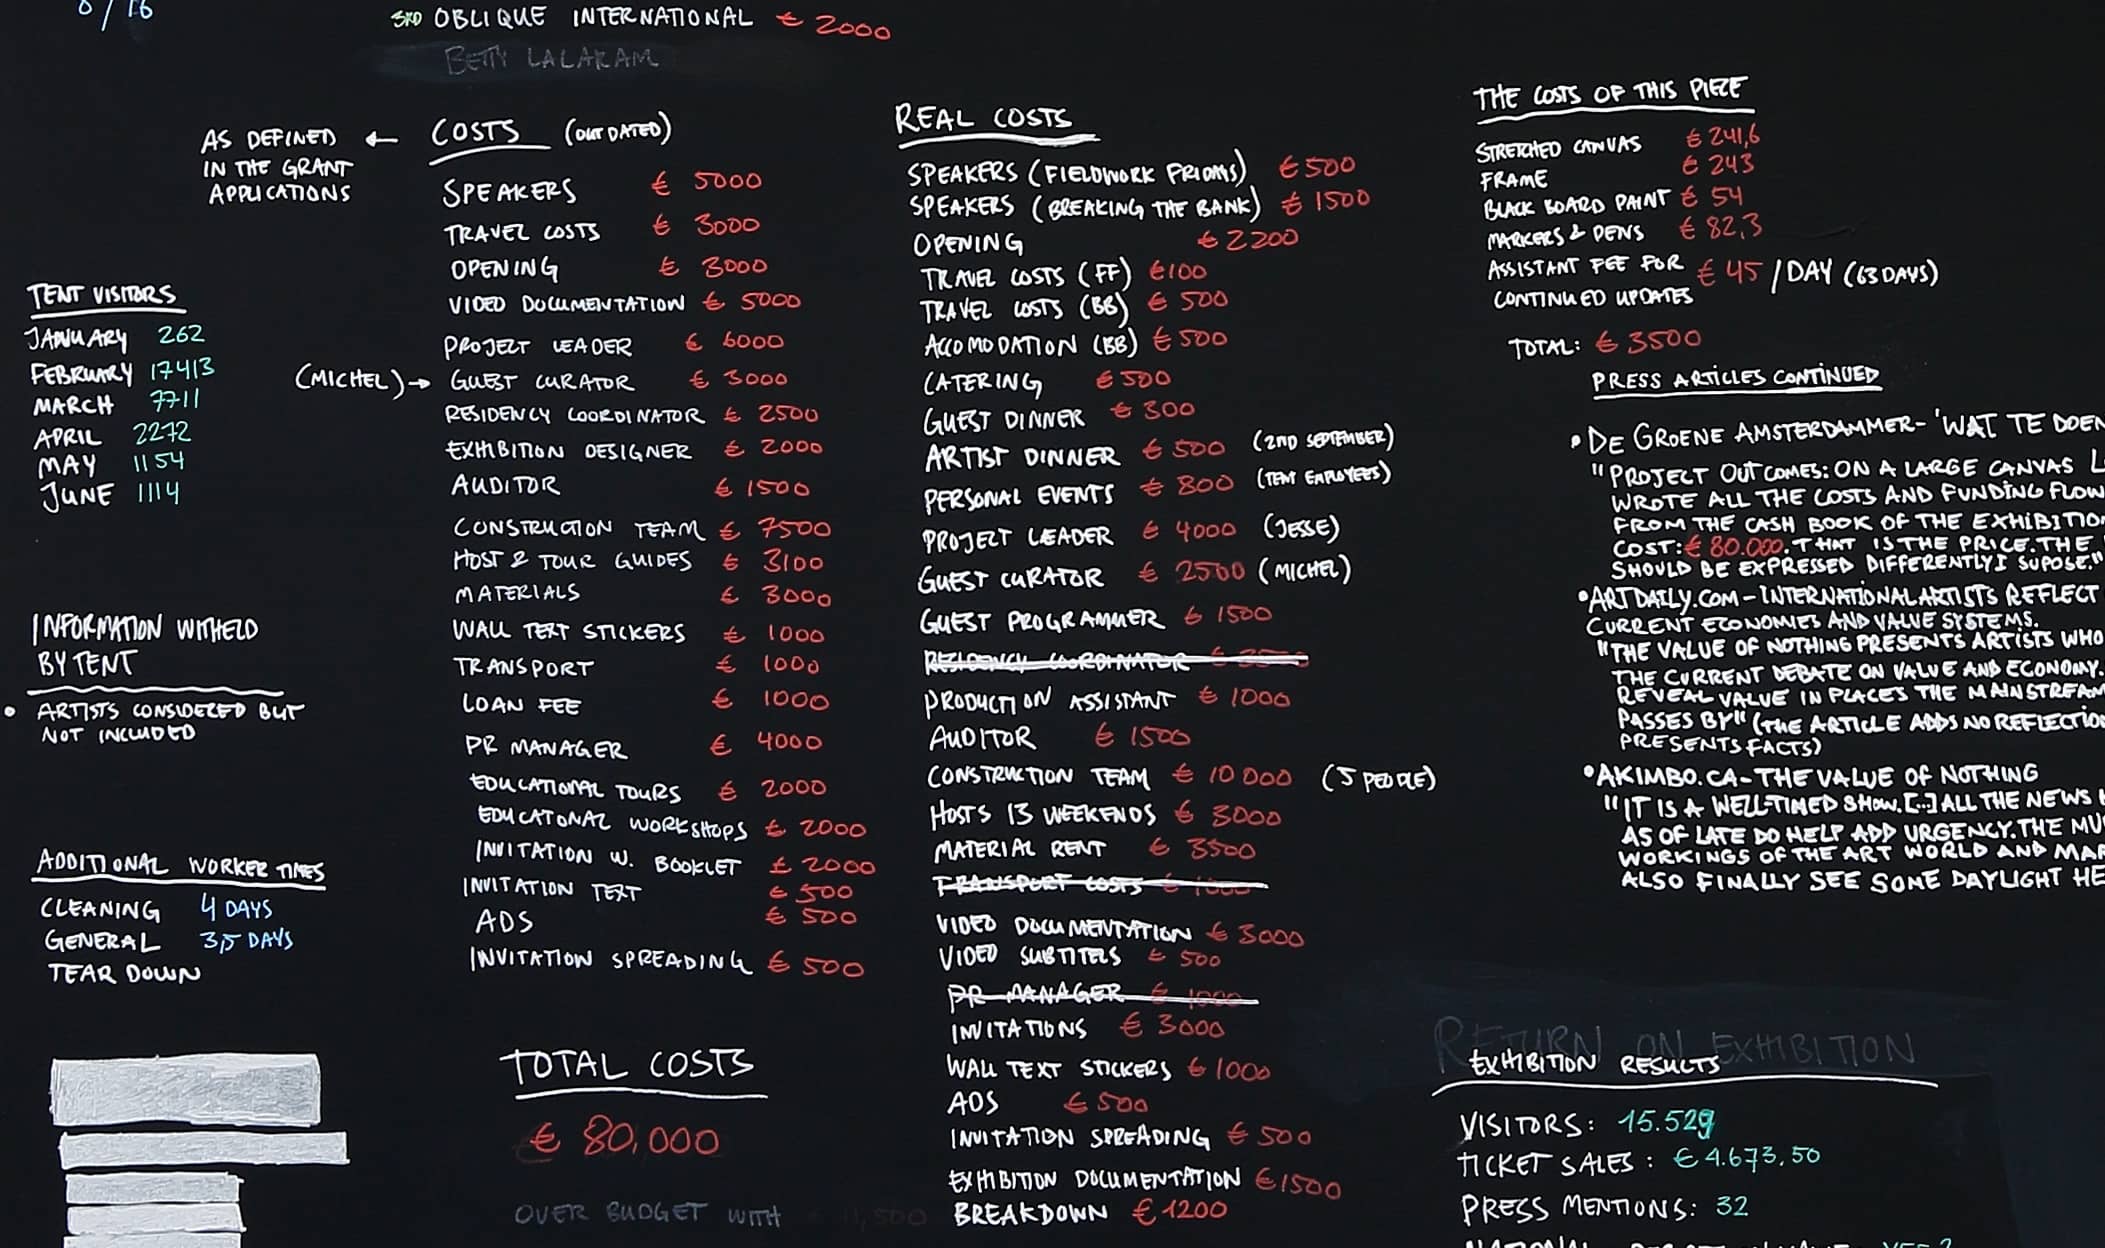 6/16
3RD OBLIQUE INTERNATIONAL € 2000
BETTY LALARAM
AS DEFINED ← COSTS (OUTDATED)
IN THE GRANT
APPLICATIONS
SPEAKERS € 5000
TRAVEL COSTS € 3000
OPENING € 3000
VIDEO DOCUMENTATION € 5000
PROJECT LEADER € 6000
(MICHEL) → GUEST CURATOR € 3000
RESIDENCY COORDINATOR € 2500
EXHIBITION DESIGNER € 2000
AUDITOR € 1500
CONSTRUCTION TEAM € 7500
HOST & TOUR GUIDES € 3100
MATERIALS € 3000
WALL TEXT STICKERS € 1000
TRANSPORT € 1000
LOAN FEE € 1000
PR MANAGER € 4000
EDUCATIONAL TOURS € 2000
EDUCATONAL WORKSHOPS € 2000
INVITATION W. BOOKLET € 2000
INVITATION TEXT € 500
ADS € 500
INVITATION SPREADING € 500
TOTAL COSTS
€ 80,000
OVER BUDGET WITH 11,500
TENT VISITORS
JANUARY 262
FEBRUARY 17413
MARCH 7711
APRIL 2272
MAY 1154
JUNE 1114
INFORMATION WITHELD
BY TENT
• ARTISTS CONSIDERED BUT
NOT INCLUDED
ADDITIONAL WORKER TIMES
CLEANING 4 DAYS
GENERAL 3,5 DAYS
TEAR DOWN
REAL COSTS
SPEAKERS (FIELDWORK FRIDAYS) € 500
SPEAKERS (BREAKING THE BANK) € 1500
OPENING € 2200
TRAVEL COSTS (FF) €100
TRAVEL COSTS (BB) € 500
ACCOMODATION (BB) € 500
CATERING € 500
GUEST DINNER € 300
ARTIST DINNER € 500 (2ND SEPTEMBER)
PERSONAL EVENTS € 800 (TENT EMPLOYEES)
PROJECT LEADER € 4000 (JESSE)
GUEST CURATOR € 2500 (MICHEL)
GUEST PROGRAMMER € 1500
RESIDENCY COORDINATOR €
PRODUCTION ASSISTANT € 1000
AUDITOR € 1500
CONSTRUCTION TEAM € 10 000 (5 PEOPLE)
HOSTS 13 WEEKENDS € 3000
MATERIAL RENT € 3500
TRANSPORT COSTS € 1000
VIDEO DOCUMENTATION € 3000
VIDEO SUBTITELS € 500
PR MANAGER € 1000
INVITATIONS € 3000
WALL TEXT STICKERS € 1000
ADS € 500
INVITATION SPREADING € 500
EXHIBITION DOCUMENTATION € 1500
BREAKDOWN € 1200
THE COSTS OF THIS PIECE
STRETCHED CANVAS € 241,6
FRAME € 243
BLACK BOARD PAINT € 54
MARKERS & PENS € 82,3
ASSISTANT FEE FOR € 45 /DAY (63 DAYS)
CONTINUED UPDATES
TOTAL: € 3500
PRESS ARTICLES CONTINUED
• DE GROENE AMSTERDAMMER - 'WAT TE DOEN
"PROJECT OUTCOMES: ON A LARGE CANVAS L
WROTE ALL THE COSTS AND FUNDING FLOW
FROM THE CASH BOOK OF THE EXHIBITIO
COST: € 80.000. THAT IS THE PRICE. THE
SHOULD BE EXPRESSED DIFFERENTLY I SUPOSE."
• ARTDAILY.COM - INTERNATIONAL ARTISTS REFLECT
CURRENT ECONOMIES AND VALUE SYSTEMS.
"THE VALUE OF NOTHING PRESENTS ARTISTS WHO
THE CURRENT DEBATE ON VALUE AND ECONOMY.
REVEAL VALUE IN PLACES THE MAINSTREAM
PASSES BY" (THE ARTICLE ADDS NO REFLECTIO
PRESENTS FACTS)
• AKIMBO.CA - THE VALUE OF NOTHING
"IT IS A WELL-TIMED SHOW. [...] ALL THE NEWS
AS OF LATE DO HELP ADD URGENCY. THE MU
WORKINGS OF THE ART WORLD AND MAR
ALSO FINALLY SEE SOME DAYLIGHT HE
RETURN ON EXHIBITION
EXHIBITION RESULTS
VISITORS: 15.529
TICKET SALES: € 4.673.50
PRESS MENTIONS: 32